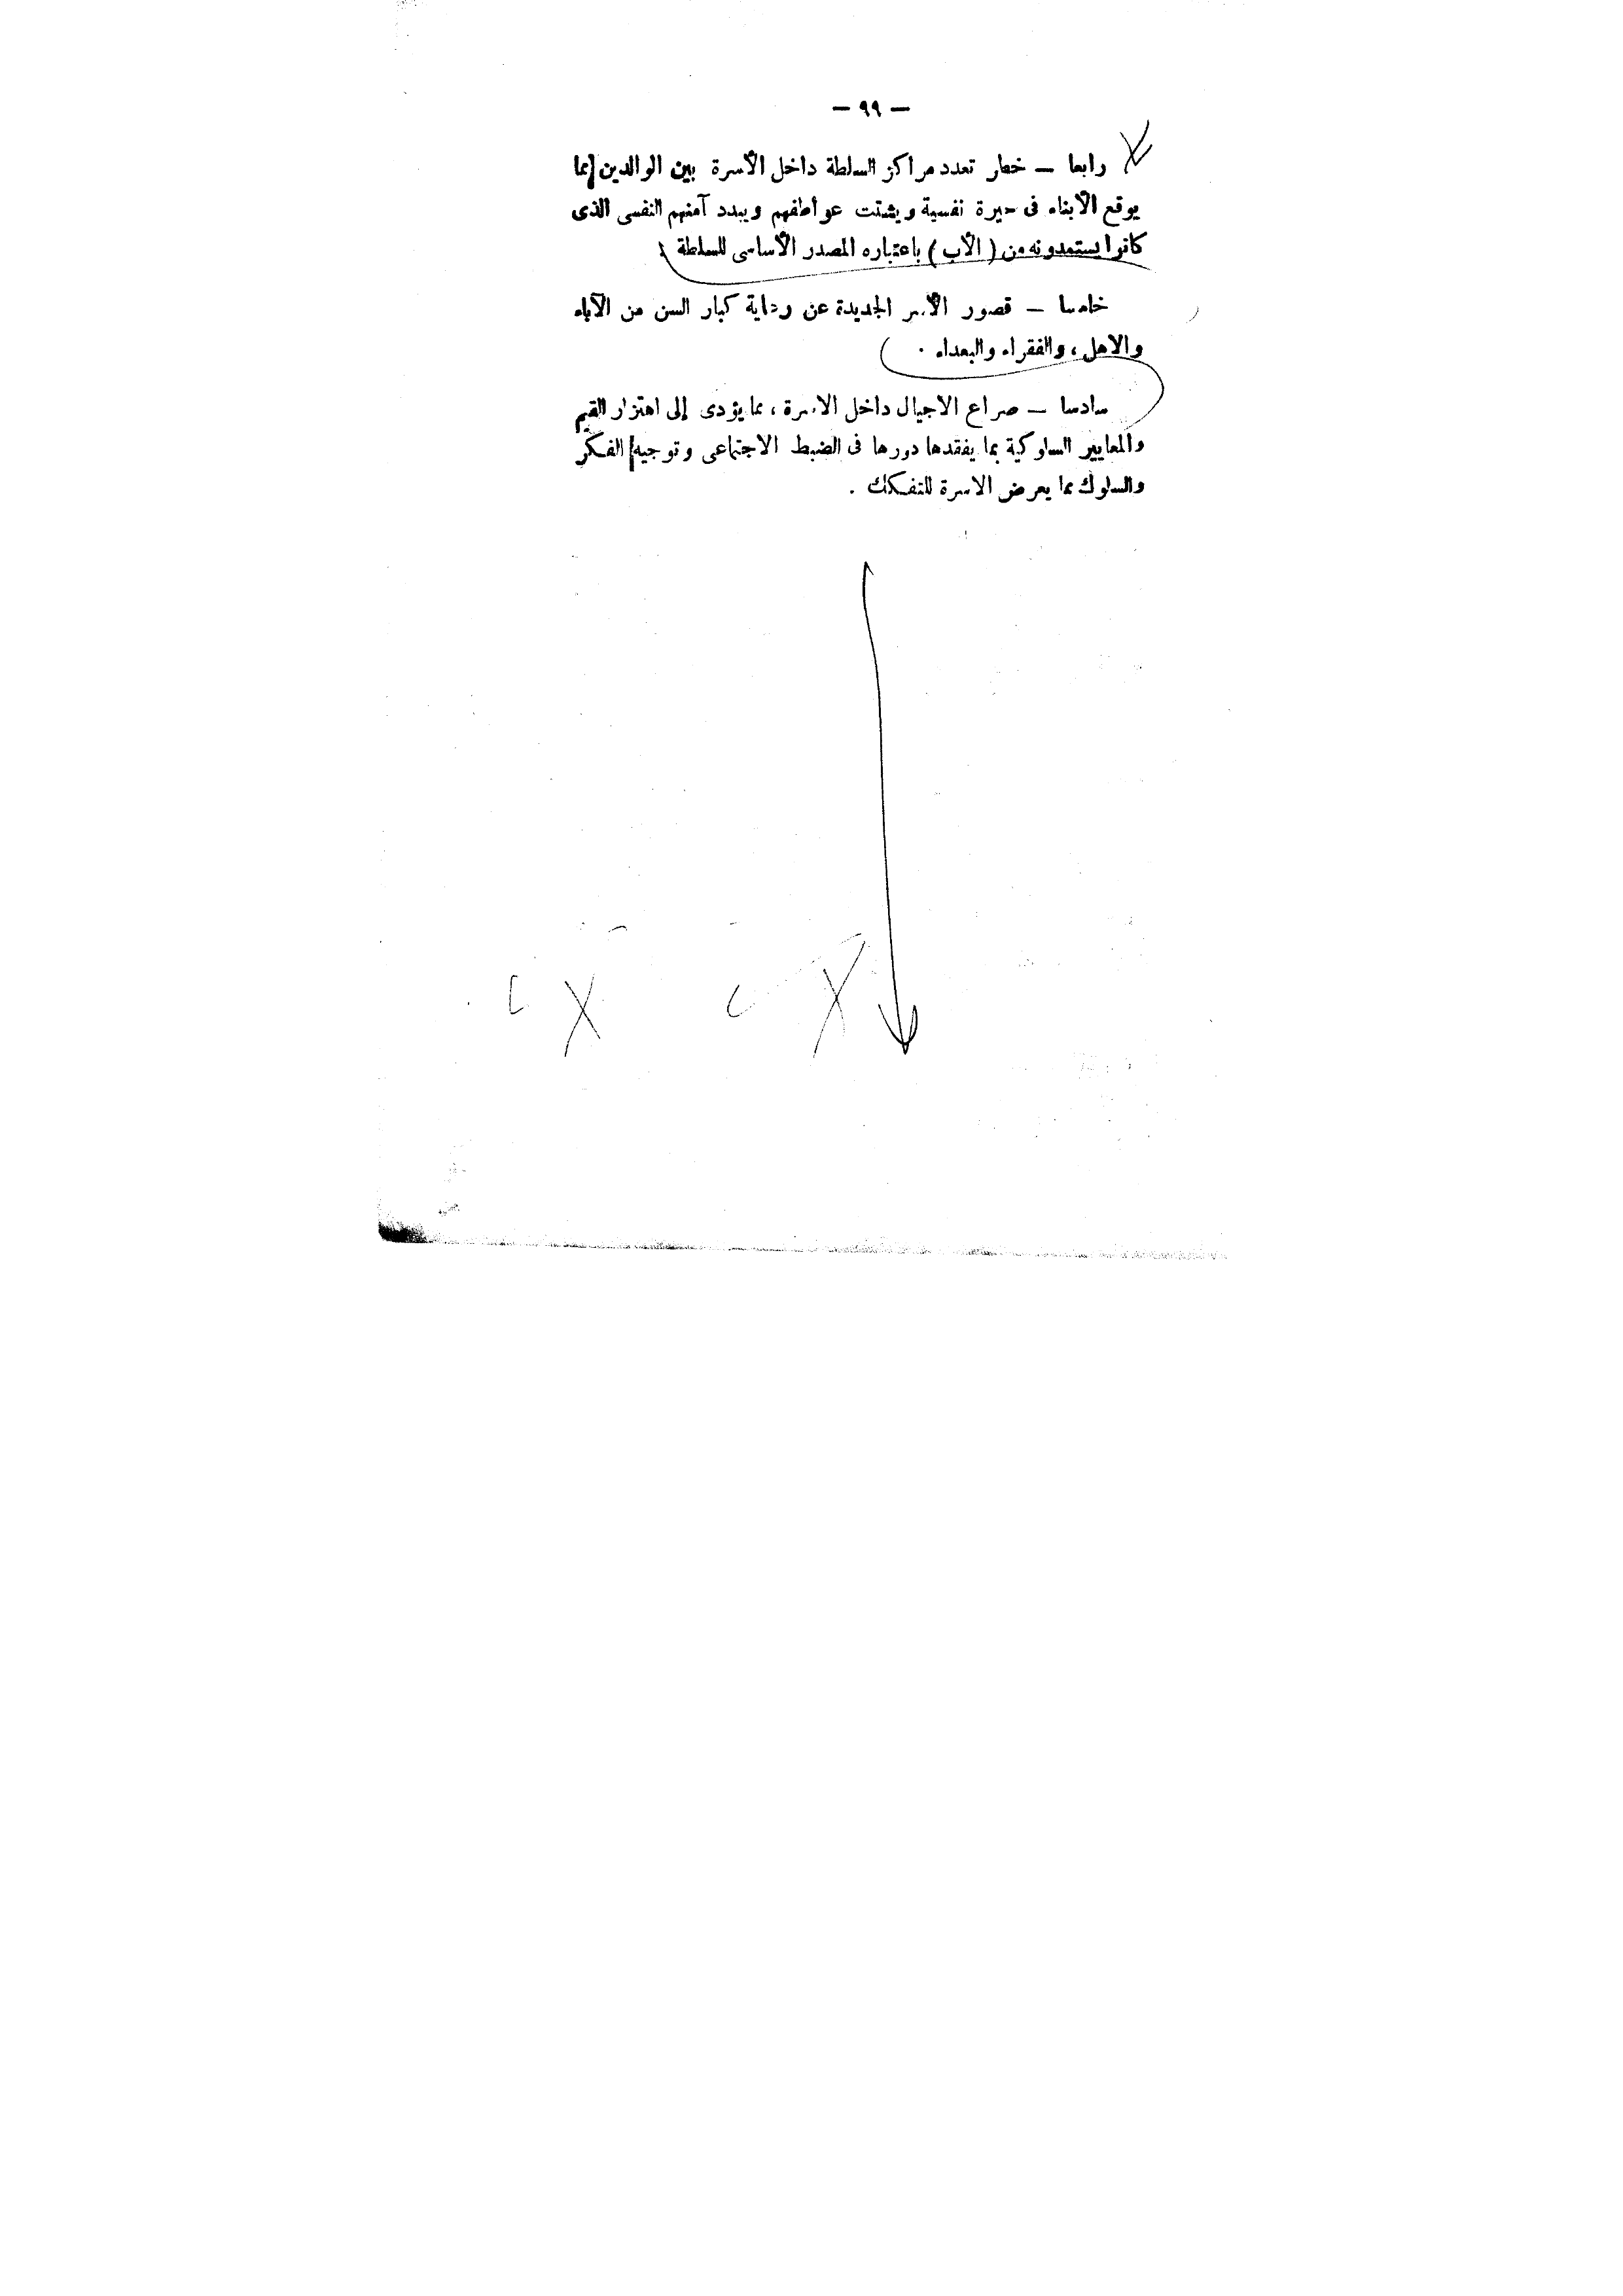 — ٩٩ —
رابعا — خطر تعدد مراكز السلطة داخل الأسرة بين الوالدين مما
يوقع الأبناء فى حيرة نفسية ويشتت عواطفهم ويبدد آمنهم النفسى الذى
كانوا يستمدونه من ( الأب ) باعتباره المصدر الأساسى للسلطة .
خامسا — قصور الأسر الجديدة عن رعاية كبار السن من الآباء
والاهل ، والفقراء والبعداء .
سادسا — صراع الاجيال داخل الاسرة ، مما يؤدى إلى اهتزار القيم
والمعايير السلوكية بما يفقدها دورها فى الضبط الاجتماعى وتوجيه الفكر
والسلوك مما يعرض الاسرة للتفكك .